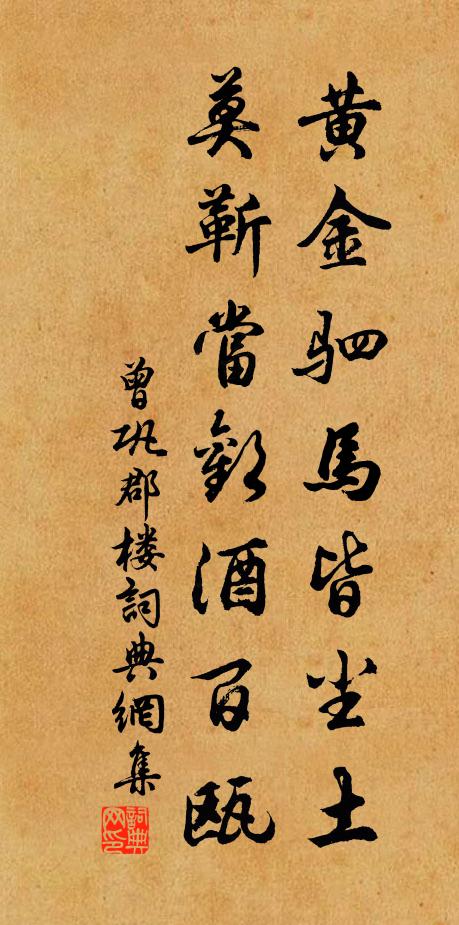 黄金駟馬皆尘土
莫靳當歡酒百瓯
曾巩郡楼詞典網集
詞典網印